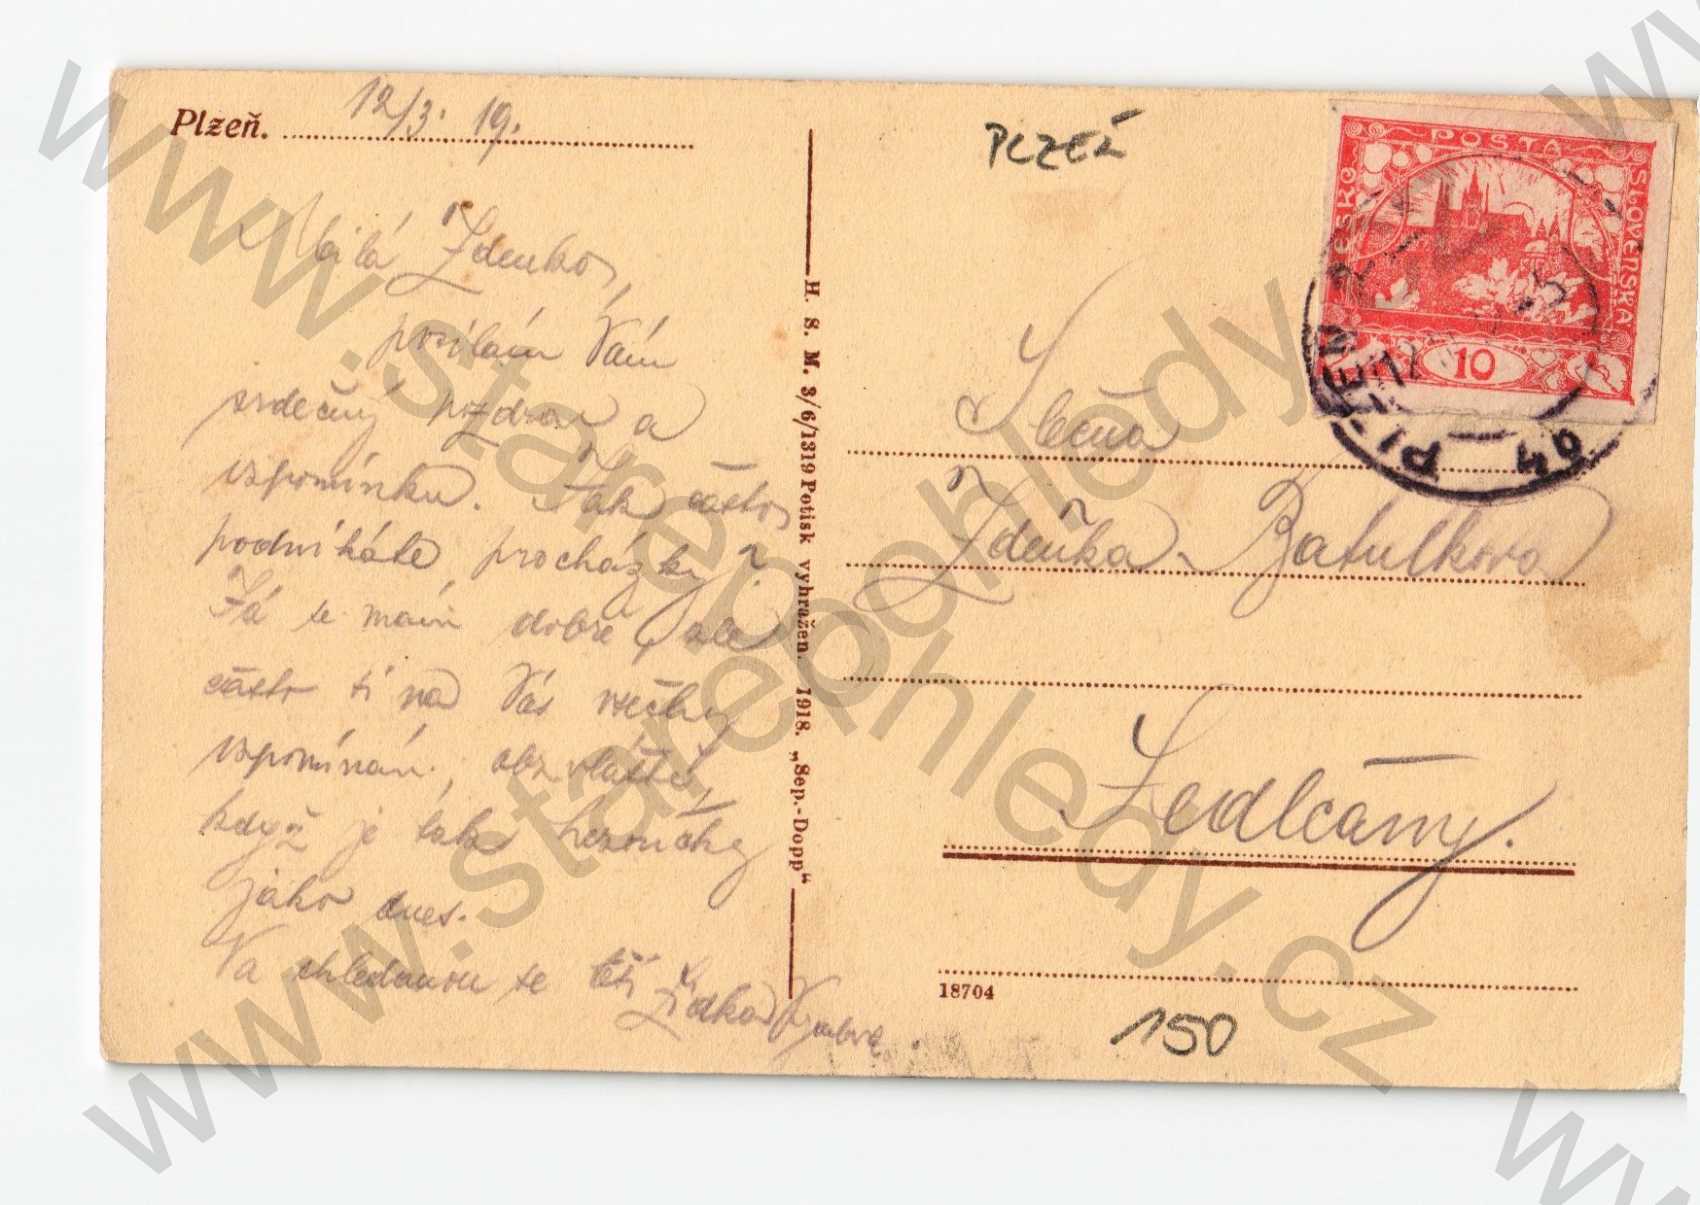 Plzeň. 12/3. 19.
Milá Zdenko,
posílám Vám
srdečný pozdrav a
vzpomínku. Jak často
podnikáte procházky?
Já se mám dobře, ale
často si na Vás všechny
vzpomínám, obzvláště,
když je tak hezoučky
jako dnes.
Na shledanou se těší
H. S. M. 3/6/1319 Potisk vyhražen. 1918. „Sep.-Dopp“
PLZEŇ
POŠTA
ČESKO
SLOVENSKÁ
10
PLZEŇ 2
PILSEN
Slečna
Zdeňka Batulkova
Sedlčany.
18704
150
www.starepohledy.cz
www.starepohledy.cz